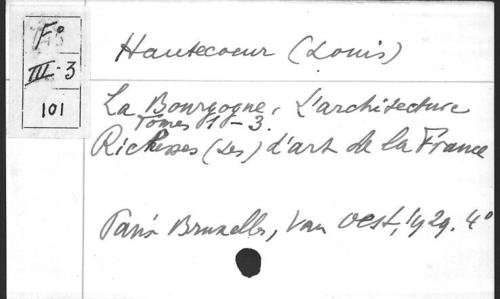 F°
III-3
101
Hautecoeur (Louis)
La Bourgogne, L'architecture
Tomes 1-3.
Richesses (Les) d'art de la France
Paris Bruxelles, Van Oest, 1929. 4°